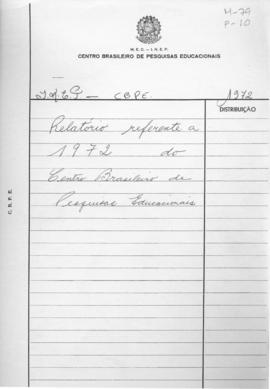 M-79
P-10
M.E.C. - I.N.E.P.
CENTRO BRASILEIRO DE PESQUISAS EDUCACIONAIS
CBPE.
1972
DISTRIBUIÇÃO
Relatório referente a
1972 do
Centro Brasileiro de
Pesquisas Educacionais
C. B. P. E.